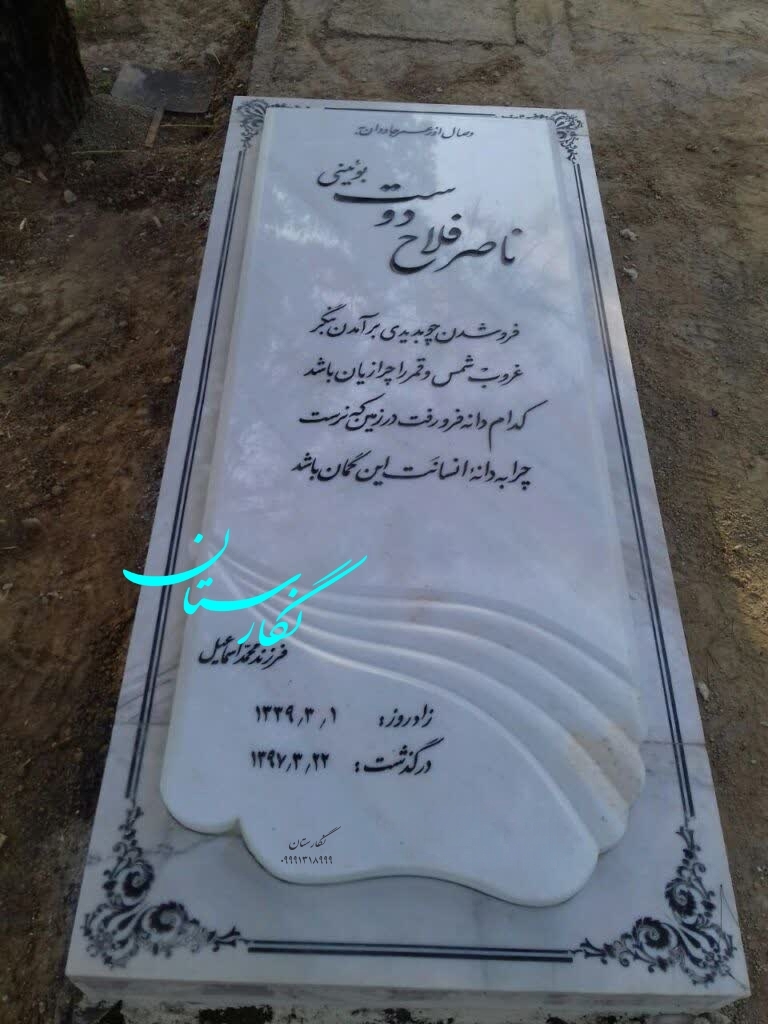 وصال او ز عمر جاودان به
ناصر فلاح دوست بوئینی
فرو شدن چو بدیدی بر آمدن بنگر
غروب شمس و قمر را چرا زیان باشد
کدام دانه فرو رفت در زمین که نرست
چرا به دانهٔ انسانت این گمان باشد
نگارستان
فرزند محمد اسماعیل
زاد روز: ۱۳۳۹٫۳٫۱
درگذشت: ۱۳۹۷٫۳٫۲۲
نگارستان
۰۹۹۹۱۳۱۸۹۹۹